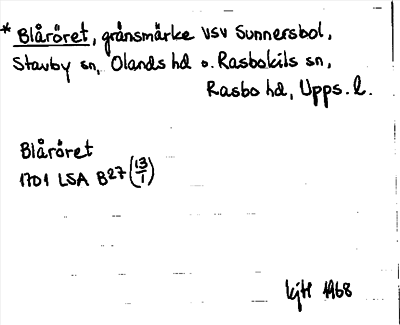 * Blåröret, gränsmärke VSV Sunnersbol,
Stavby sn, Olands hd o. Rasbokils sn,
Rasbo hd, Upps. l.
Blåröret
1701 LSA B27 (13/1)
kjH 1968